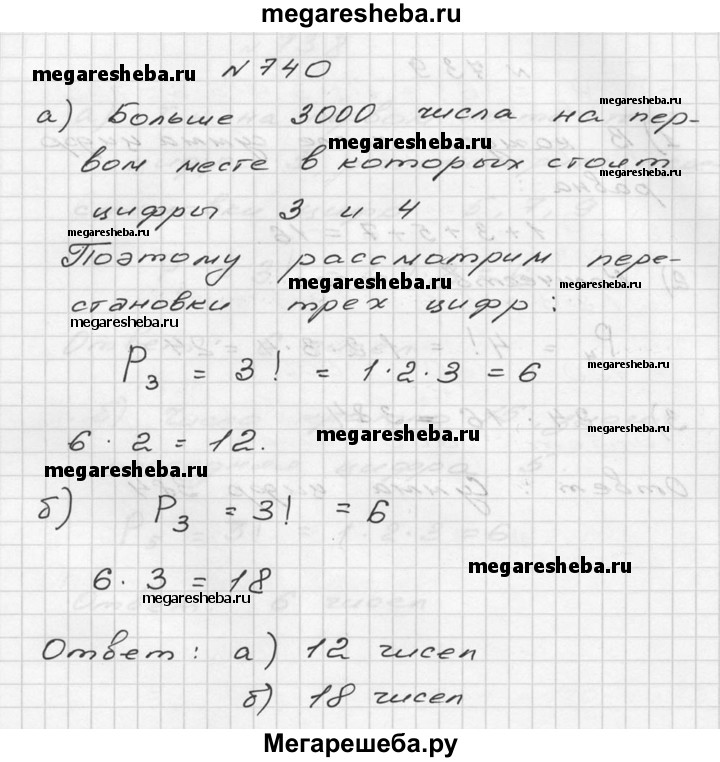 megaresheba.ru
megaresheba.ru № 740
а) Больше 3000 числа на пер- megaresheba.ru
megaresheba.ru
вом месте в которых стоит
цифры 3 и 4
Поэтому рассмотрим пере-
megaresheba.ru megaresheba.ru
становки трех цифр:
megaresheba.ru
P₃ = 3! = 1·2·3 = 6 megaresheba.ru
6 · 2 = 12. megaresheba.ru megaresheba.ru
megaresheba.ru
б) P₃ = 3! = 6
6 · 3 = 18 megaresheba.ru
megaresheba.ru
Ответ: а) 12 чисел
б) 18 чисел
Мегарешеба.ру